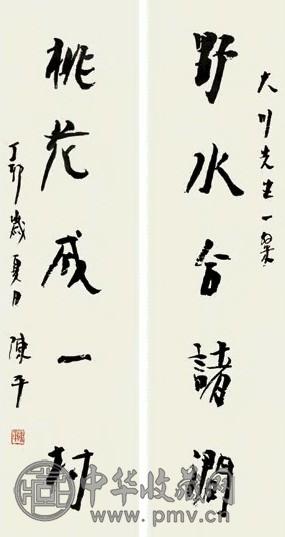 大川先生一粲
野水合諸澗
桃花成一村
丁卯歲夏日 陳平
中华收藏网
www.pmv.cn